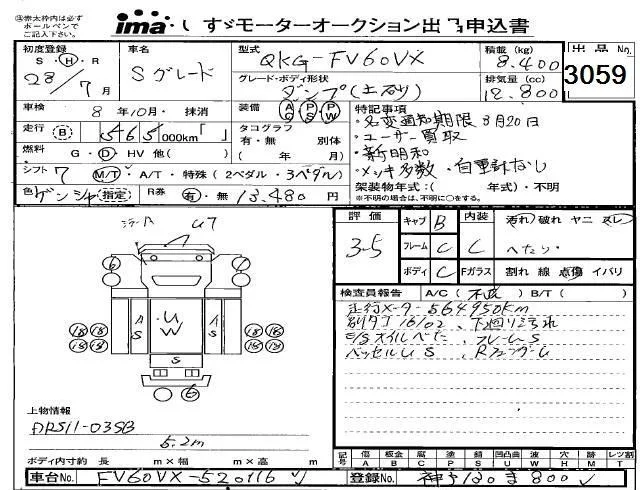 ①※太枠内は必ず
ボールペンで
ご記入下さい。
ima いすゞモーターオークション出品申込書
初度登録
S・H・R
28/7月
車名
Sグレード
型式
QKG-FV60VX
積載 (kg)
8,400
グレード・ボディ形状
ダンプ(土砂)
排気量 (cc)
12,800
出品No.
3059
車検 8年10月・抹消
装備 AC PS PW
走行 B 565,000km「 」
タコグラフ
有・無 別体
( 年 月)
燃料 G・D・HV 他( )
シフト 7 M/T・A/T・特殊(2ペダル・3ペダル)
色 ゲンシャ(指定) R券 有・無 13,480 円
特記事項
・名変通知期限 3月20日
・ユーザー買取
・新明和
・メッキ多数 ・自重計なし
架装物年式:( 年式)・不明
※不明の場合は、不明に○をする。
評価
3.5
キャブ B
フレーム C
ボディ C
内装 C
汚れ 破れ ヤニ スレ
へたり
Fガラス 割れ 線 点傷 イバリ
検査員報告 A/C( ) B/T( )
走行メーター564950km
下回り錆
E/Sオイルべた、フレームS
ベッセルUS、RフェンダーU
U7
A S
U W
A S
S
上物情報
DRS11-03SB
5.2m
ボディ内寸約 長 m×幅 m×高 m
記号 傷A 板金B 腐C 塗P 錆S 凹凸曲U 波W 穴H 跡M レツ割T
車台No. FV60VX-520116
登録No. 800